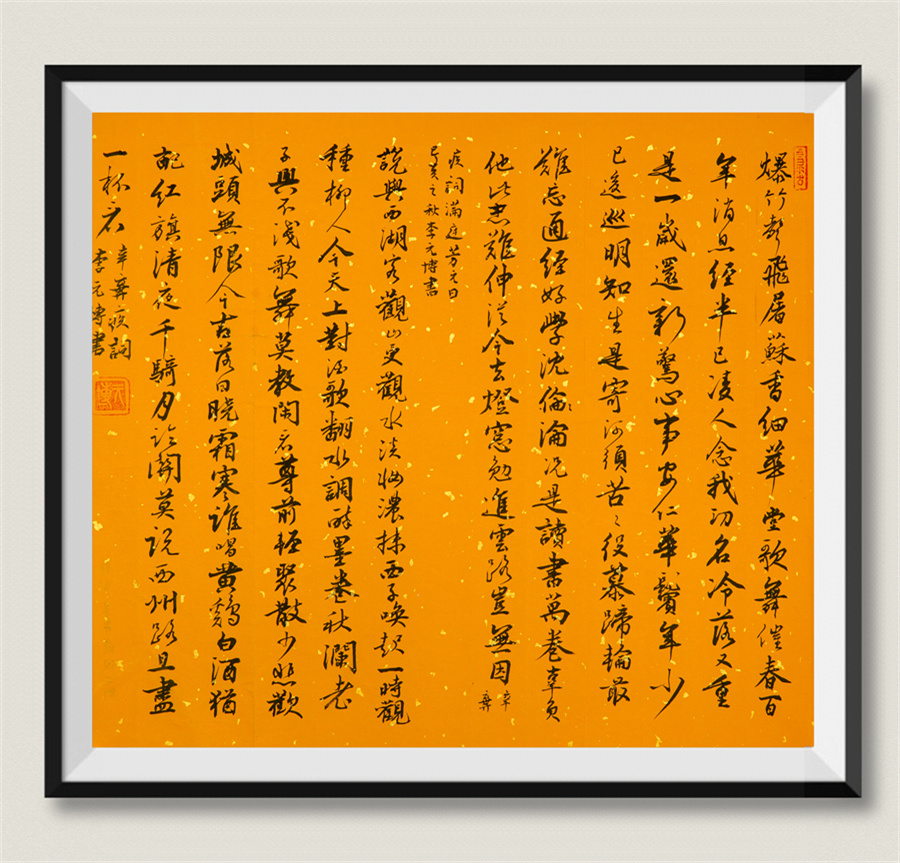 爆竹聲飛屠蘇香細華堂歌舞催春百
年消息經半已凌人念我功名冷落又重
是一歲還新驚心事安仁華鬢年少
已逡巡明知生是寄何須苦〻役慕蹄輪最
難忘通經好學沈倫淪況是讀書萬卷辜負
他此志難伸從今去燈窓勉進雲路豈無因辛棄
疾詞滿庭芳元日
己亥之秋李元博書
說與西湖客觀山更觀水淡妝濃抹西子喚起一時觀
種柳人今天上對酒歌翻水調醉墨卷秋瀾老
子興不淺歌舞莫教閑看尊前輕聚散少悲歡
城頭無限今古落日曉霜寒誰唱黃鷄白酒猶
記紅旗清夜千騎月臨關莫說西州路且盡
一杯看
辛棄疾詞
李元博書